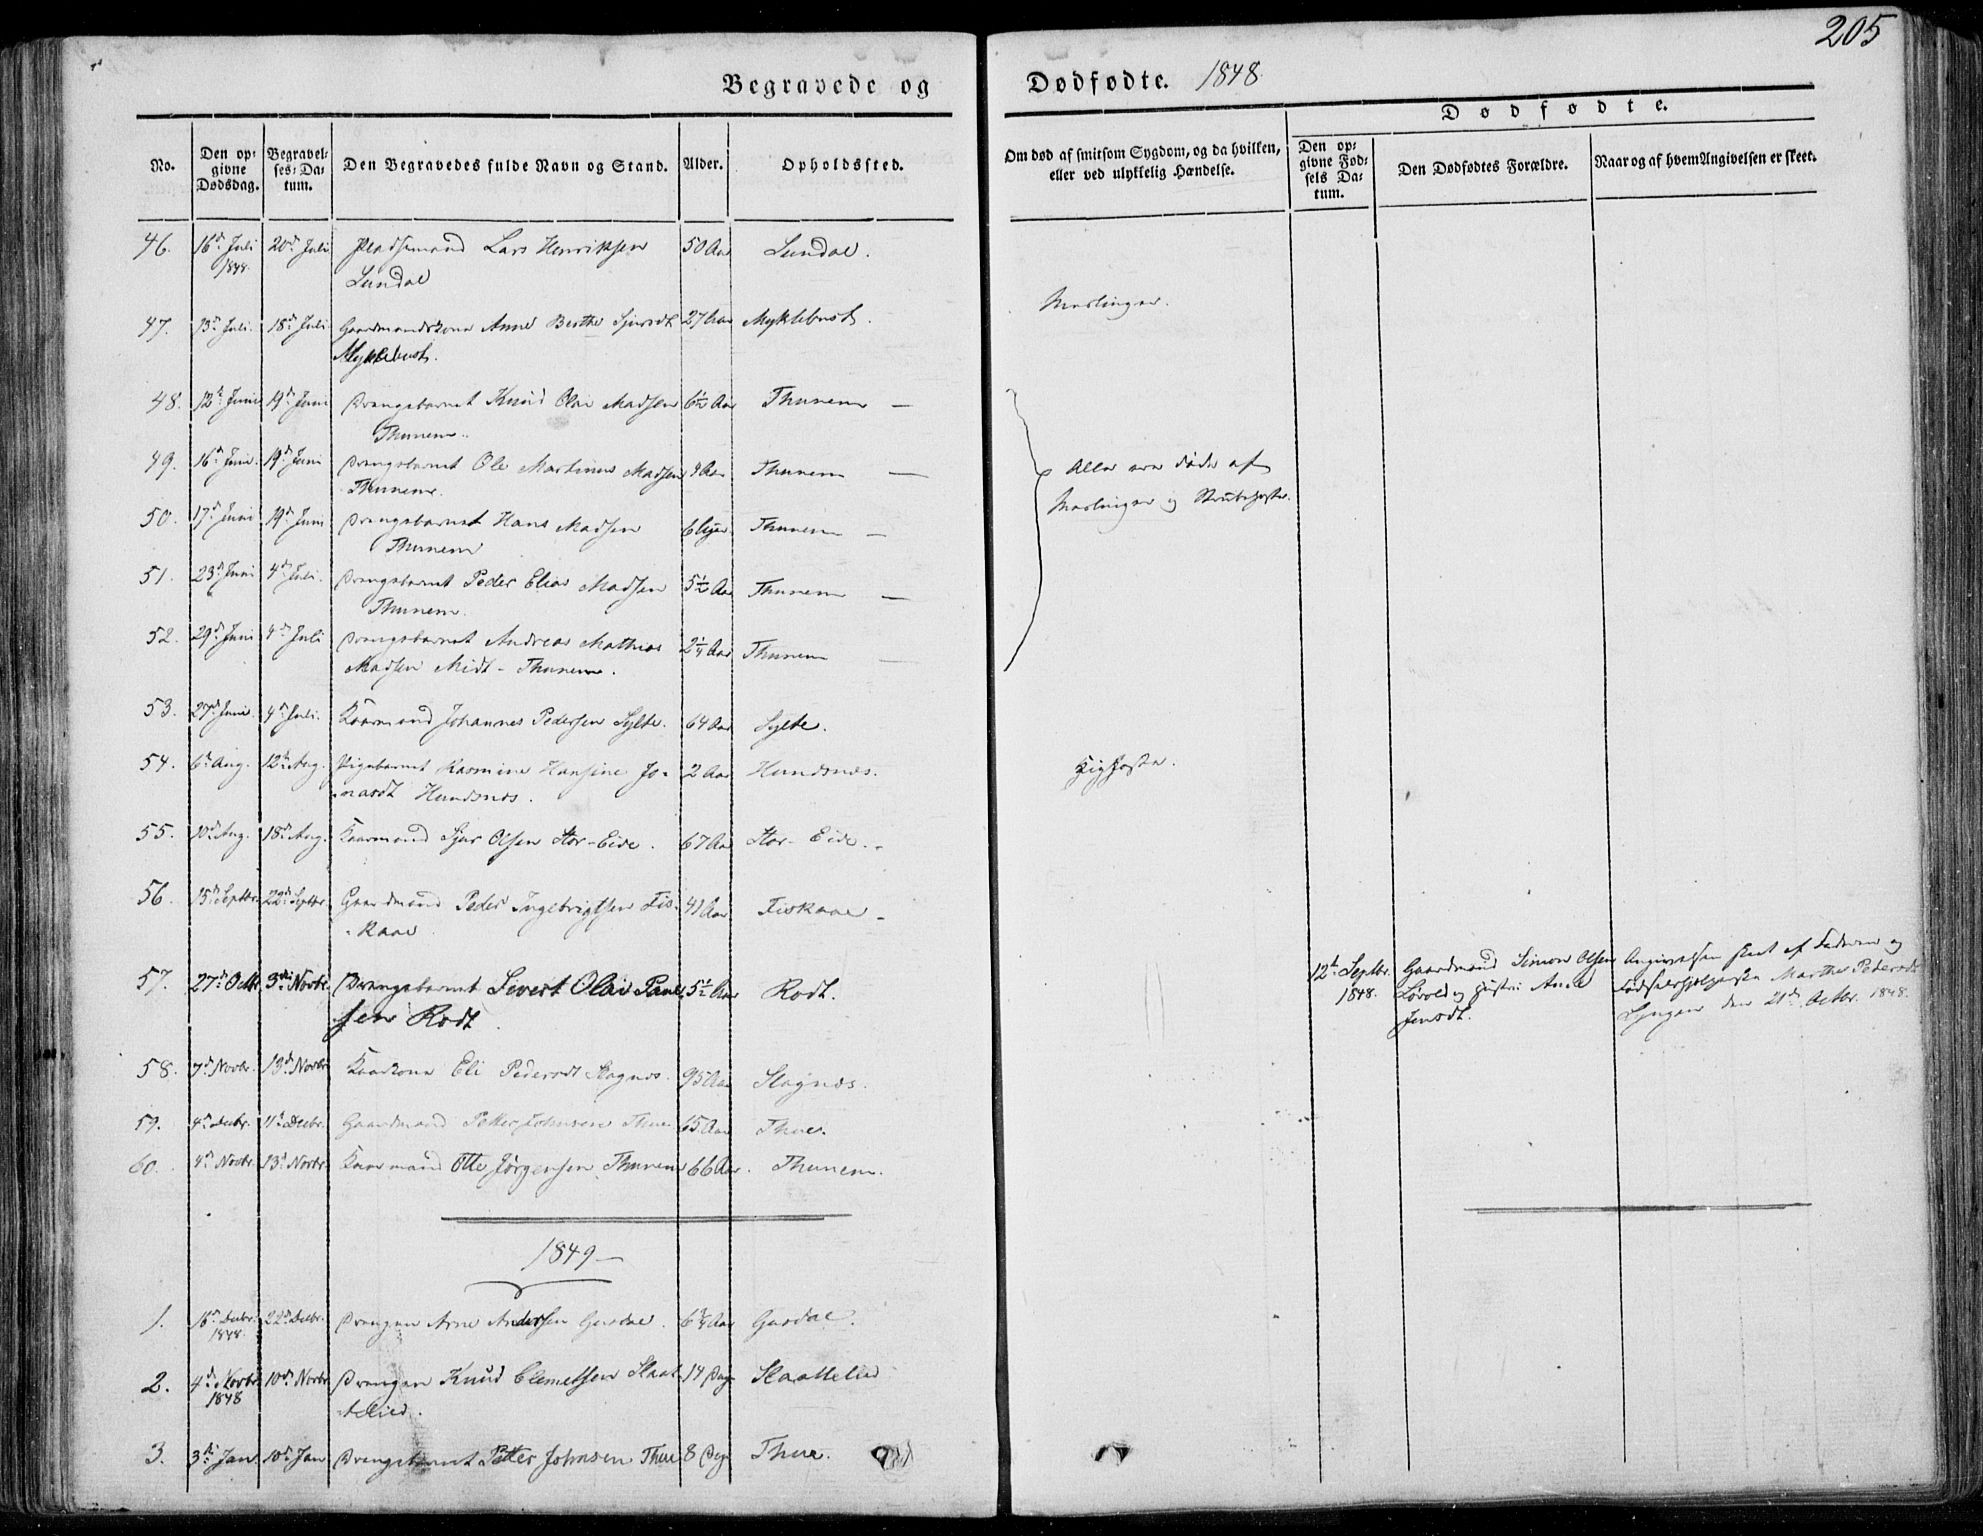 205
Begravede og Dødfødte. 1848.
Dødfødte.
No.
Den opgivne Dødsdag.
Begravelses-Datum.
Den Begravedes fulde Navn og Stand.
Alder.
Opholdssted.
Om død af smitsom Sygdom, og da hvilken, eller ved ulykkelig Hændelse.
Den opgivne Fødsels Datum.
Den Dødfødtes Forældre.
Naar og af hvem Angivelsen er skeet.
46. 16de Juli 20de Juli Pladsemand Lars Henriksen 50 Aar Lundal.
1848. Lundal
47. 13de Juli. 18de Juli Gaardmandskone Anne Berthe Sjursdt 27 Aar Myklebust. Meslinger.
Myklebust.
48. 12te Juni 19de Juni Drengebarnet Knud Olai Madsen 6½ Aar Thunem —
Thunem.
49. 16de Juni 19de Juni Drengebarnet Ole Martinus Madsen 4 Aar Thunem — Alle ere døde af
Thunem. Meslinger og Strubehoste.
50. 17de Juni 19de Juni Drengebarnet Hans Madsen 6 Uger Thunem —
Thunem
51. 23de Juni 4de Juli. Drengebarnet Peder Elias Madsen 5½ Aar Thunem —
Thunem.
52. 29de Juni 4de Juli Drengebarnet Andreas Mathias 2¼ Aar Thunem —
Madsen Midt-Thunem.
53. 27de Juni 4de Juli. Kaarmand Johannes Pedersen Sylte. 64 Aar Sylte.
54. 6te Aug. 12te Aug. Pigebarnet Rasmine Hansine Jo- 2 Aar Hundsnes. Kighoste.
nasdt Hundsnes.
55. 10de Aug. 18de Aug. Kaarmand Sjur Olsen Stor-Eide. 67 Aar Stor-Eide.
56. 15de Septbr. 22de Septbr. Gaardmand Peder Ingebrigtsen Fis- 41 Aar Fiskaae
kaae
12te Septbr. Gaardmand Simon Olsen Angivelsen skeet af Faderen og
1848. Løvold og Hustru Ane Fødselshjelperske Marthe Pedersdt
Jensdt. Lyngen den 21de Octbr. 1848.
57. 27de Octbr 3die Novbr. Drengebarnet Sivert Olai Paul- 5½ Aar Rodt.
sen Rodt
58. 7de Novbr. 13de Novbr Kaarkone Eli Pedersdt Slagnes. 95 Aar Slagnes.
59. 4de Decbr. 11te Decbr. Gaardmand Petter Johnsen Thue 65 Aar Thue.
60. 4de Novbr. 13de Novbr. Kaarmand Otte Jørgensen Thunem 66 Aar. Thunem.
1849 —
1. 16de Decbr. 22de Decbr. Drengen Arne Andersen Gusdal. 6¼ Aar Gusdal.
1848.
2. 4de Novbr. 10de Novbr Drengen Knud Clemetsen Slaat- 14 Dage Slaattelied
1848 telied.
3. 3die Jan. 10de Jan Drengebarnet Petter Johnsen Thue 8 Dage Thue.